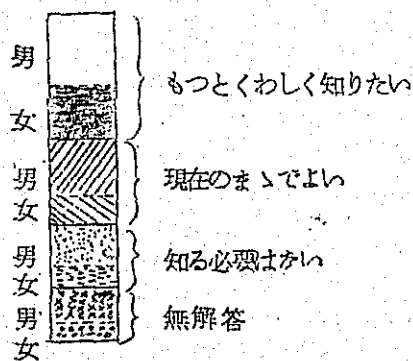 男
女
もつとくわしく知りたい
男
女
現在のまゝでよい
男
女
知る必要はない
男
女
無解答